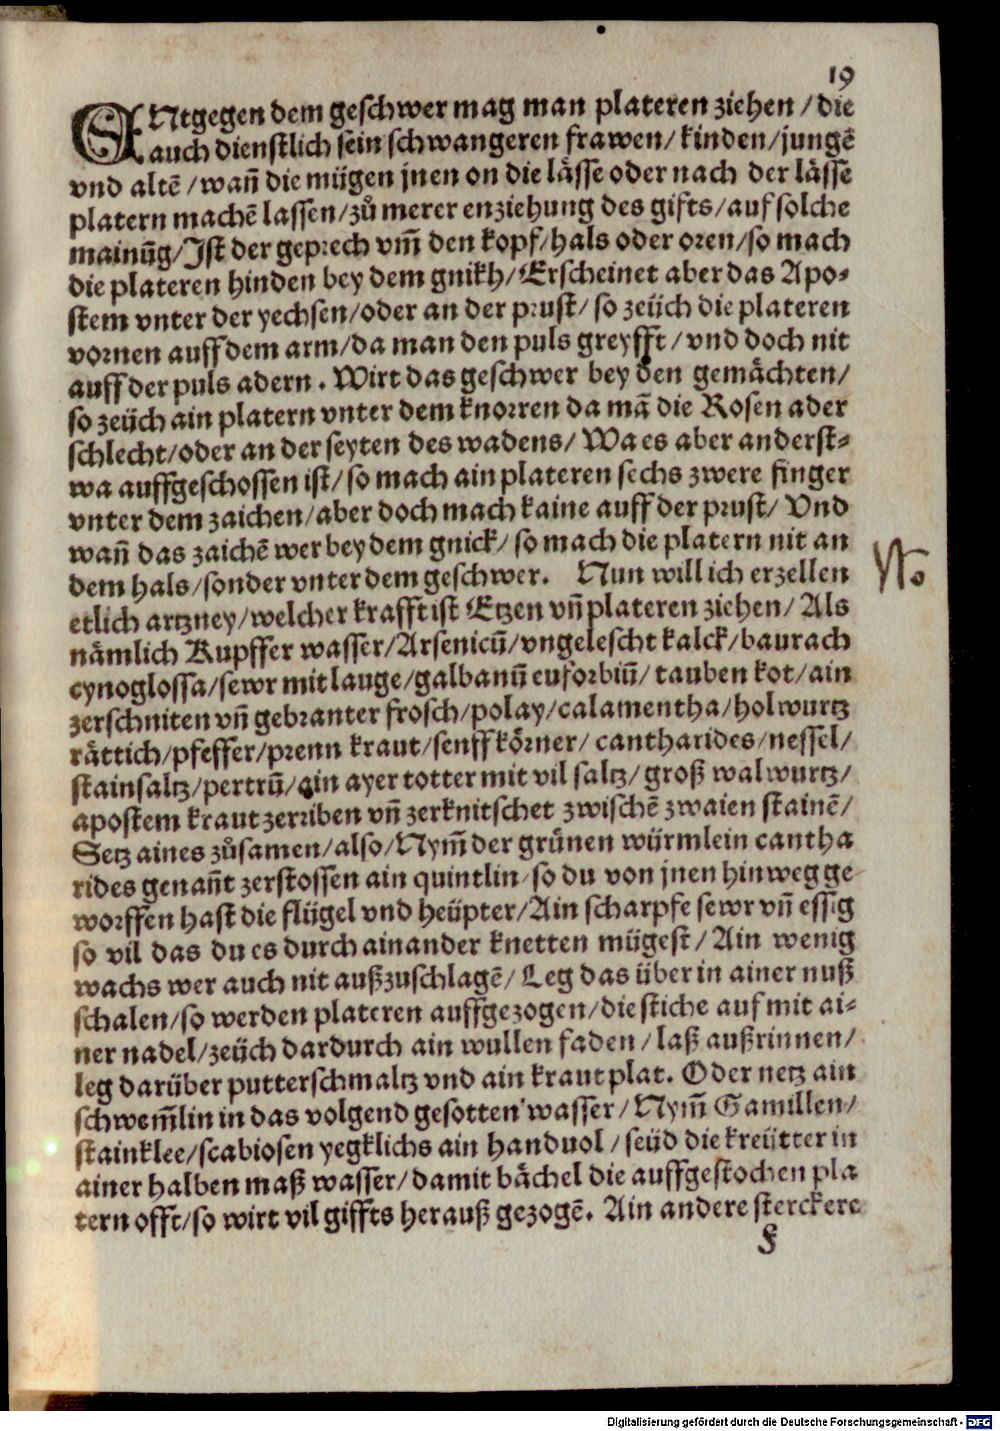 19
ENtgegen dem geschwer mag man plateren ziehen / die
auch dienstlich sein schwangeren frawen / kinden / jungē
vnd altē / wañ die mügen jnen on die lässe oder nach der lässe
platern machē lassen / zů merer enziehung des gifts / auf solche
mainūg / Jst der geprech vm̃ den kopf / hals oder oren / so mach
die plateren hinden bey dem gnikh / Erscheinet aber das Apo-
stem vnter der yechsen / oder an der prust / so zeüch die plateren
vornen auff dem arm / da man den puls greyfft / vnd doch nit
auff der puls adern . Wirt das geschwer bey den gemächten /
so zeüch ain platern vnter dem knorren da mā die Rosen ader
schlecht / oder an der seyten des wadens / Wa es aber anderst-
wa auffgeschossen ist / so mach ain plateren sechs zwere finger
vnter dem zaichen / aber doch mach kaine auff der prust / Vnd
wañ das zaichē wer bey dem gnick / so mach die platern nit an
dem hals / sonder vnter dem geschwer . Nun will ich erzellen
etlich artzney / welcher krafft ist Etzen vñ plateren ziehen / Als
nämlich Kupffer wasser / Arsenicū / vngelescht kalck / baurach
cynoglossa / sewr mit lauge / galbanū euforbiū / tauben kot / ain
zerschniten vñ gebranter frosch / polay / calamentha / holwurtz
rättich / pfeffer / prenn kraut / senff körner / cantharides / nessel /
stainsaltz / pertrū / ain ayer totter mit vil saltz / groß walwurtz /
apostem kraut zerriben vñ zerknitschet zwischē zwaien stainē /
Setz aines zůsamen / also / Nym̃ der grünen würmlein cantha
rides genañt zerstossen ain quintlin / so du von jnen hinweg ge
worffen hast die flügel vnd heüpter / Ain scharpfe sewr vñ essig
so vil das du es durch ainander knetten mügest / Ain wenig
wachs wer auch nit außzuschlagē / Leg das über in ainer nuß
schalen / so werden plateren auffgezogen / die stiche auf mit ai-
ner nadel / zeüch dardurch ain wullen faden / laß außrinnen /
leg darüber putterschmaltz vnd ain kraut plat . Oder netz ain
schwem̃lin in das volgend gesotten wasser / Nym̃ Gamillen /
stainklee / scabiosen yegklichs ain handuol / seüd die kreütter in
ainer halben maß wasser / damit bächel die auffgestochen pla
tern offt / so wirt vil giffts herauß gezogē . Ain andere sterckere
f
Digitalisierung gefördert durch die Deutsche Forschungsgemeinschaft - DFG